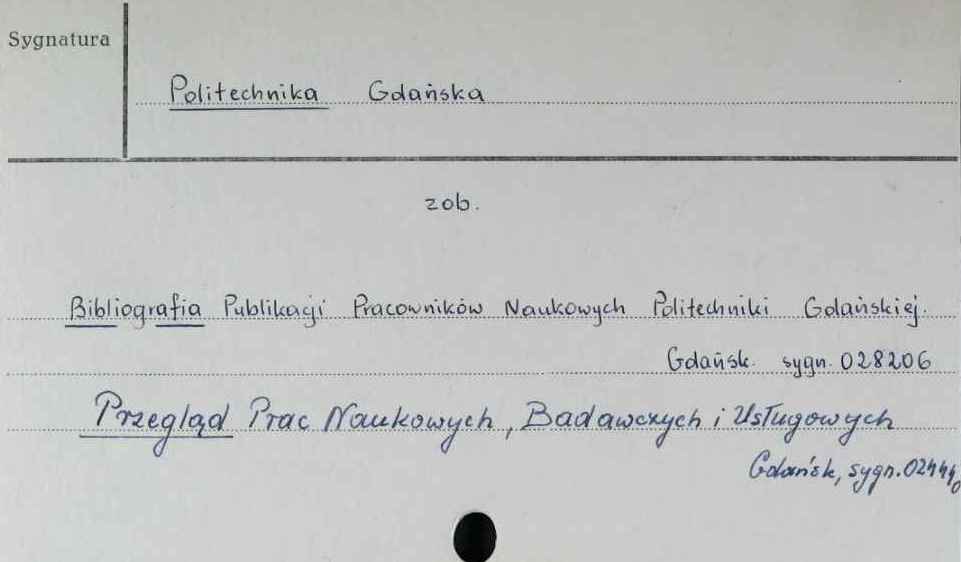 Sygnatura
Politechnika Gdańska
zob.
Bibliografia Publikacji Pracowników Naukowych Politechniki Gdańskiej.
Gdańsk. sygn. 028206
Przegląd Prac Naukowych, Badawczych i Usługowych
Gdańsk, sygn.